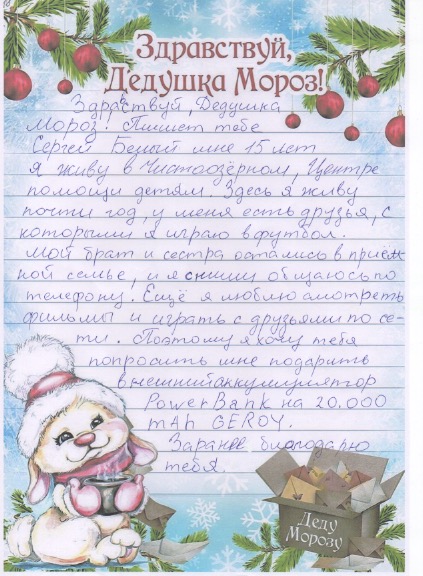 Здравствуй,
Дедушка Мороз!
Здравствуй, Дедушка
Мороз! Пишет тебе
Сергей Белый мне 15 лет
Я живу в Чистоозёрном, Центре
помощи детям. Здесь я живу
почти год, у меня есть друзья, с
которыми я играю в футбол.
Мой брат и сестра остались в приём-
ной семье, и я с ними общаюсь по
телефону. Ещё я люблю смотреть
фильмы и играть с друзьями по се-
ти. Поэтому я хочу тебя
попросить мне подарить
внешний аккумулятор
PowerBank на 20.000
mAh GEROY.
Заранее благодарю
тебя.
Деду
Морозу